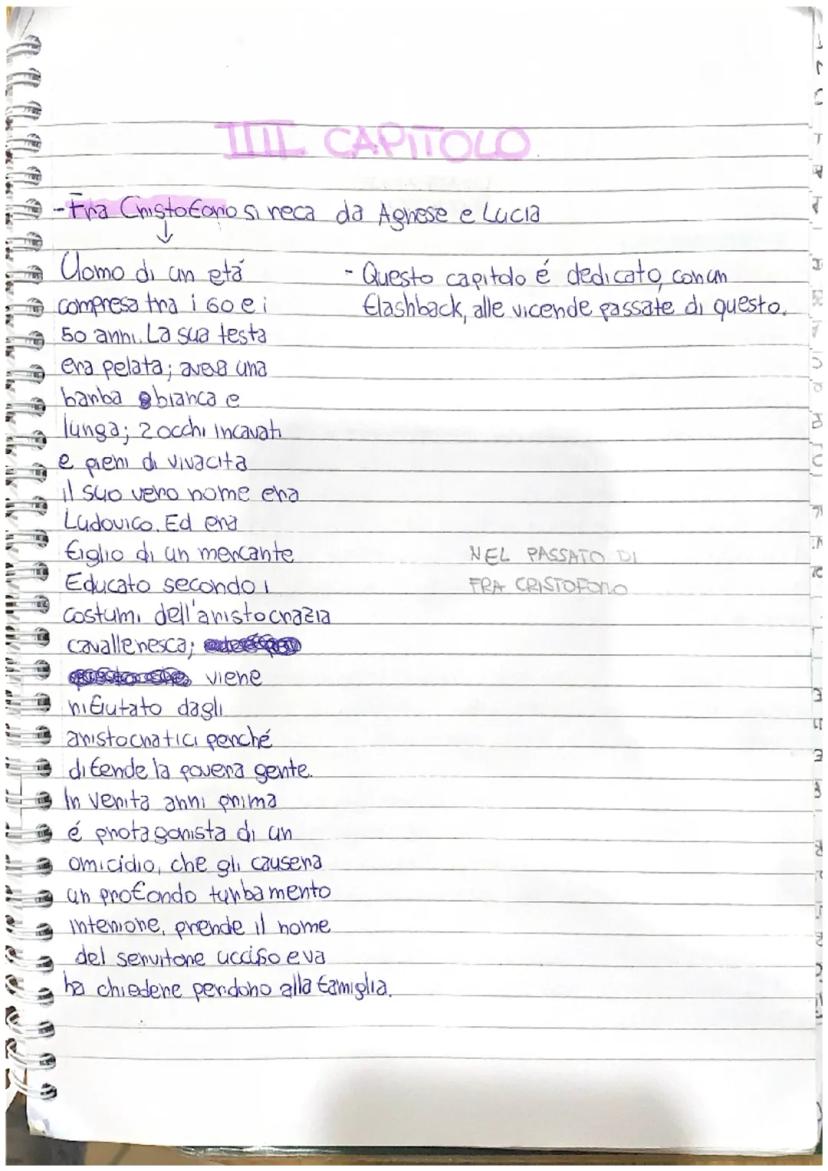 IIII CAPITOLO
- Fra Cristoforo si reca da Agnese e Lucia
↓
Uomo di un etá
compresa tra i 60 e i
50 anni. La sua testa
era pelata; aveva una
barba bianca e
lunga; 2 occhi incavati
e pieni di vivacita
il suo vero nome era
Ludovico. Ed era
figlio di un mercante
Educato secondo i
costumi dell'aristocrazia
cavalleresca;
viene
rifiutato dagli
aristocratici perché
difende la povera gente.
In verita anni prima
é protagonista di un
omicidio, che gli causera
un profondo turbamento
interiore, prende il nome
del servitore ucciso e va
ha chiedere perdono alla famiglia.
- Questo capitolo é dedicato, con un
flashback, alle vicende passate di questo.
NEL PASSATO DI
FRA CRISTOFORO